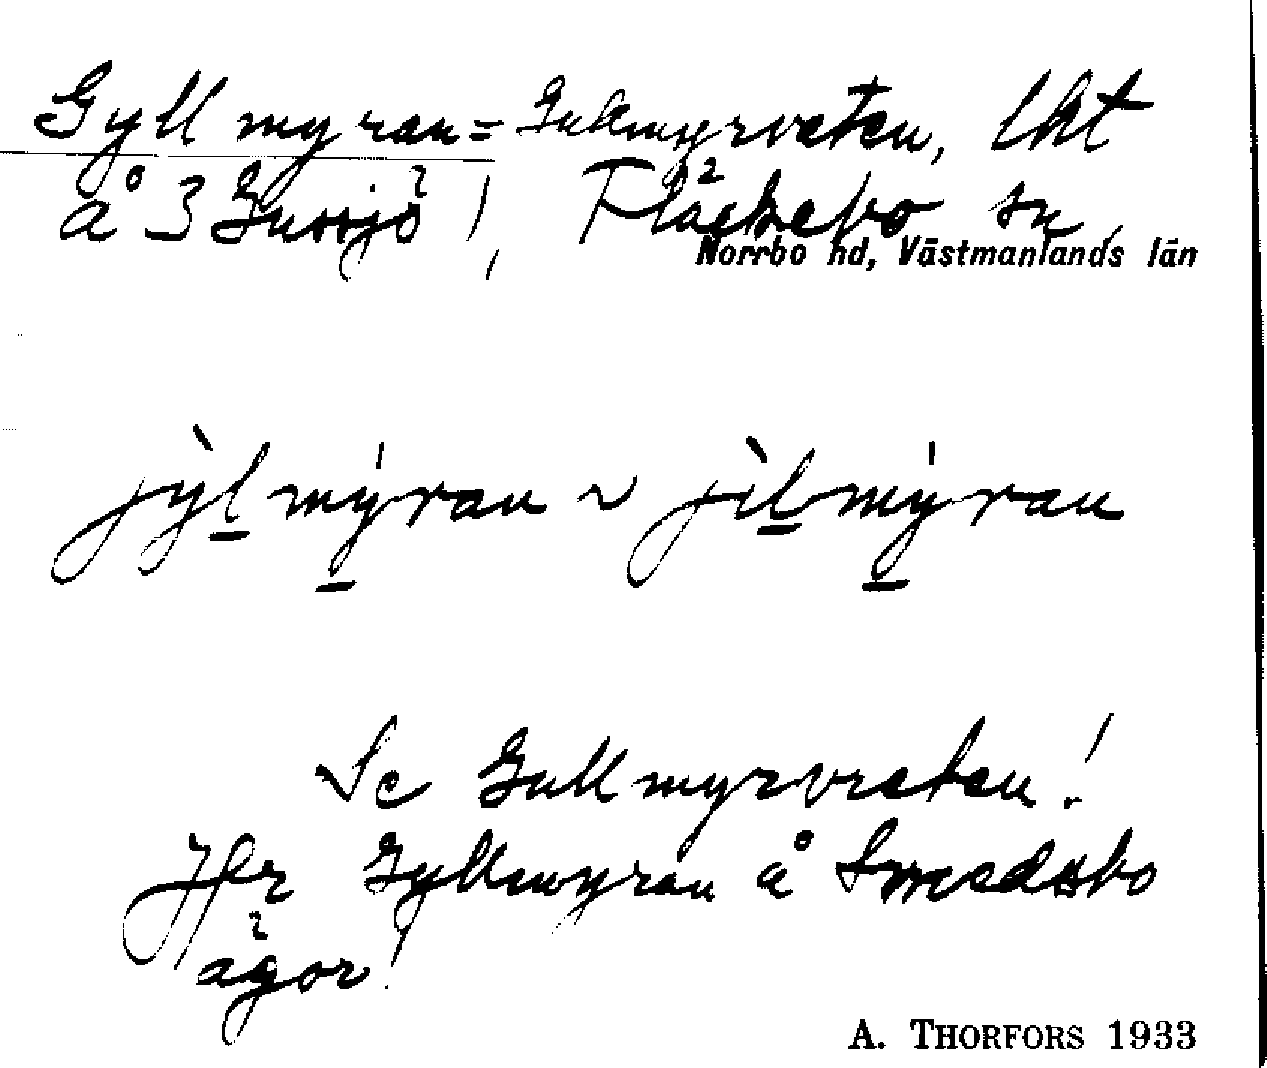 Gyllmyran = Gullmyrvreten, lht
å 3 Gussjö, Fläckebo sn,
Norrbo hd, Västmanlands län
jỳlmýran ~ jìlmýran
Se Gullmyrvreten!
Jfr Gyllmyran å Smedsbo
ägor!
A. THORFORS 1933